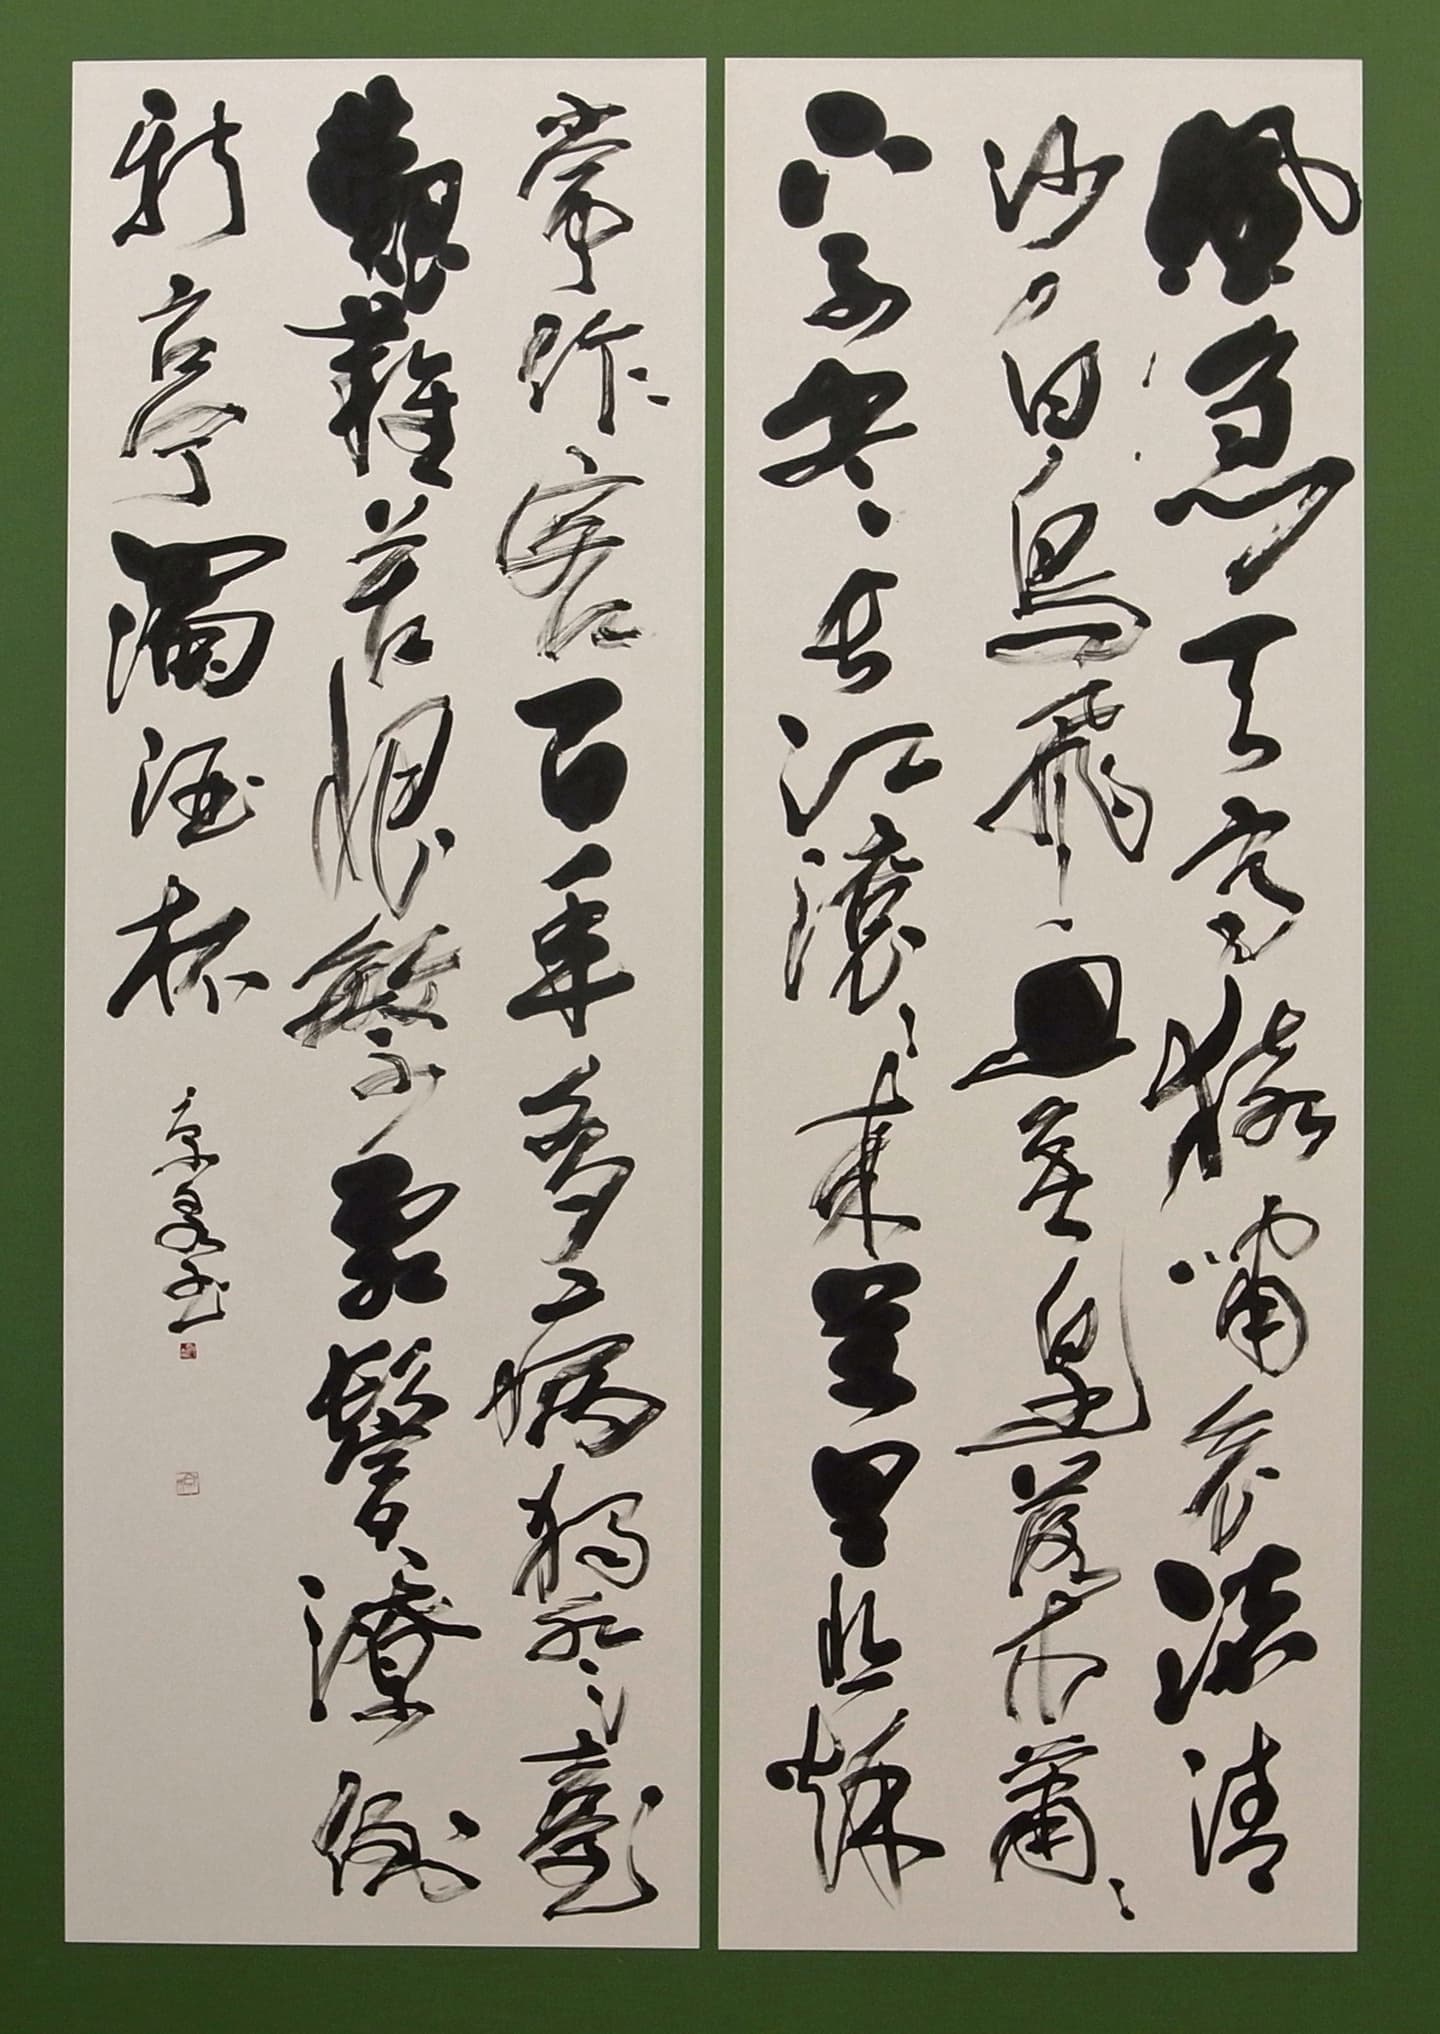 風急天高猿嘯哀渚清
沙白鳥飛廻無邊落木蕭々
下不尽長江滾々来萬里悲秋
常作客百年多病獨登臺
艱難苦恨繁霜鬢潦倒
新停濁酒杯